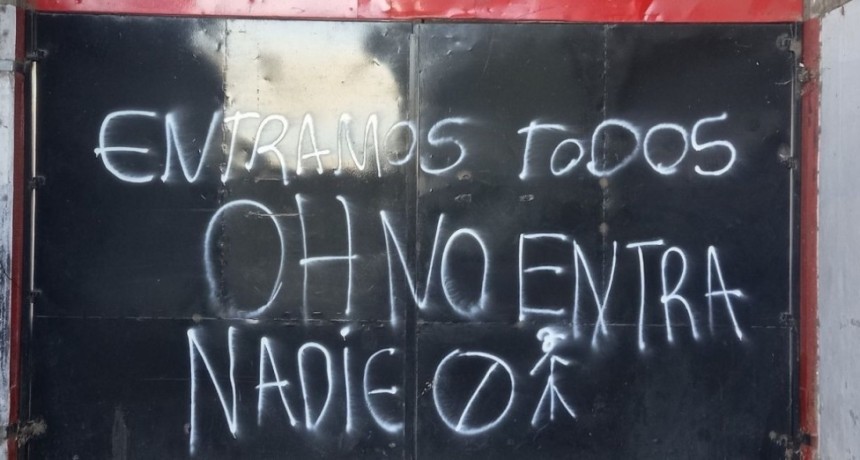 ENTRAMOS ToDOS
OH NO ENTRA
NADiE